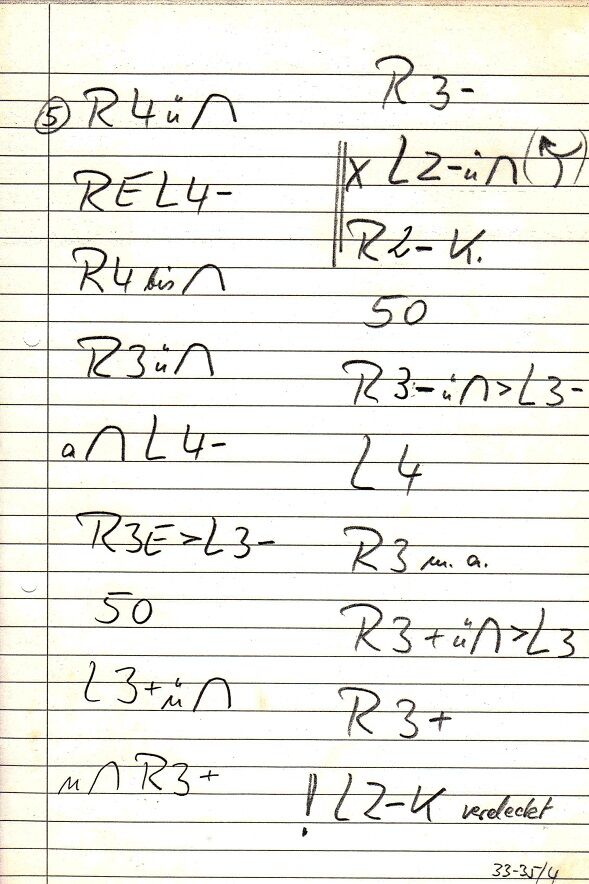 ⑤ R4 ü ∩
REL4-
R4 bis ∩
R3 ü ∩
a ∩ L4-
R3E>L3-
50
L3+ ü ∩
n ∩ R3+
R3-
X L2- ü ∩ (↖)
R2- K.
50
R3- ü ∩ > L3-
L4
R3 m. a.
R3+ ü ∩ > L3
R3+
! L2-K verdeckt
33-35/4